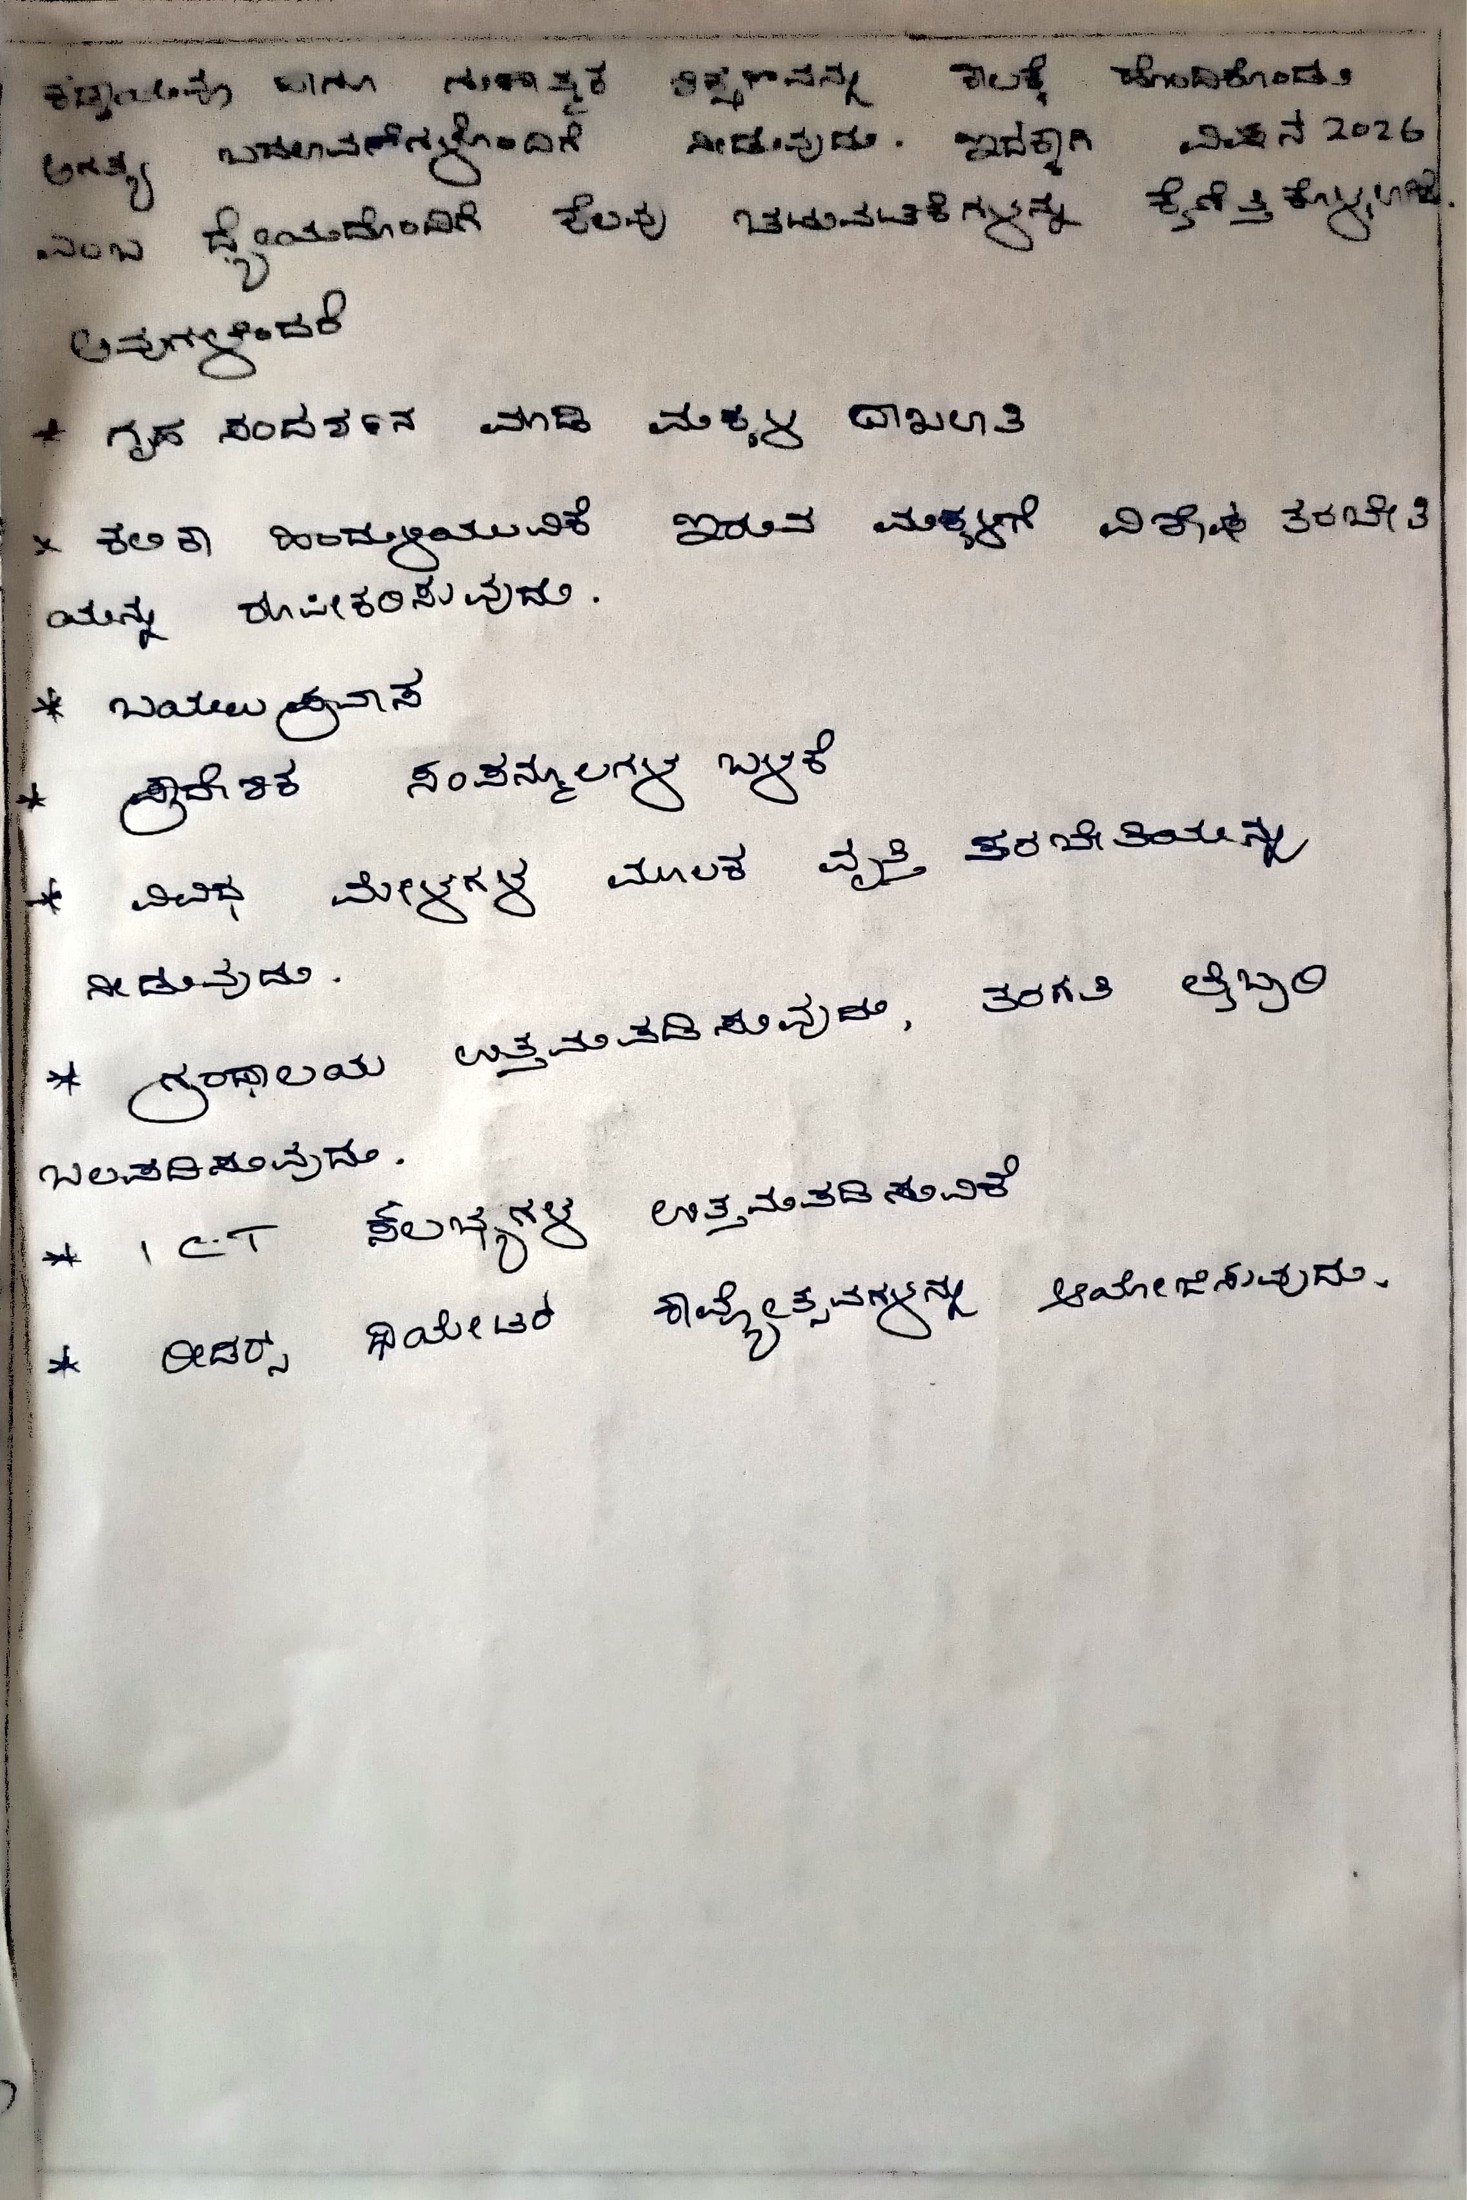 ಕಡ್ಡಾಯವೂ ಹಾಗೂ ಗುಣಾತ್ಮಕ ಶಿಕ್ಷಣವನ್ನು ಕಾಲಕ್ಕೆ ಹೊಂದಿಕೊಂಡು
ಅಗತ್ಯ ಬದಲಾವಣೆಗಳೊಂದಿಗೆ ನೀಡುವುದು. ಇದಕ್ಕಾಗಿ ವಿಷನ್ 2026
ಎಂಬ ಧ್ಯೇಯದೊಂದಿಗೆ ಕೆಲವು ಚಟುವಟಿಕೆಗಳನ್ನು ಕೈಗೆತ್ತಿಕೊಳ್ಳಲಾಗಿದೆ.
ಅವುಗಳೆಂದರೆ
* ಗೃಹ ಸಂದರ್ಶನ ಮಾಡಿ ಮಕ್ಕಳ ದಾಖಲಾತಿ
* ಕಲಿಕಾ ಹಿಂದುಳಿಯುವಿಕೆ ಇರುವ ಮಕ್ಕಳಿಗೆ ವಿಶೇಷ ತರಬೇತಿ
ಯನ್ನು ರೂಪೀಕರಿಸುವುದು.
* ಬಯಲು ಪ್ರವಾಸ
* ಪ್ರಾದೇಶಿಕ ಸಂಪನ್ಮೂಲಗಳ ಬಳಕೆ
* ವಿವಿಧ ಮೇಳಗಳ ಮೂಲಕ ವೃತ್ತಿ ತರಬೇತಿಯನ್ನು
ನೀಡುವುದು.
* ಗ್ರಂಥಾಲಯ ಉತ್ತಮಪಡಿಸುವುದು, ತರಗತಿ ಲೈಬ್ರರಿ
ಬಲಪಡಿಸುವುದು.
* ICT ಸೌಲಭ್ಯಗಳ ಉತ್ತಮಪಡಿಸುವಿಕೆ
* ರೀಡರ್ಸ್ ಥಿಯೇಟರ್ ಕಾವ್ಯೋತ್ಸವಗಳನ್ನು ಆಯೋಜಿಸುವುದು.